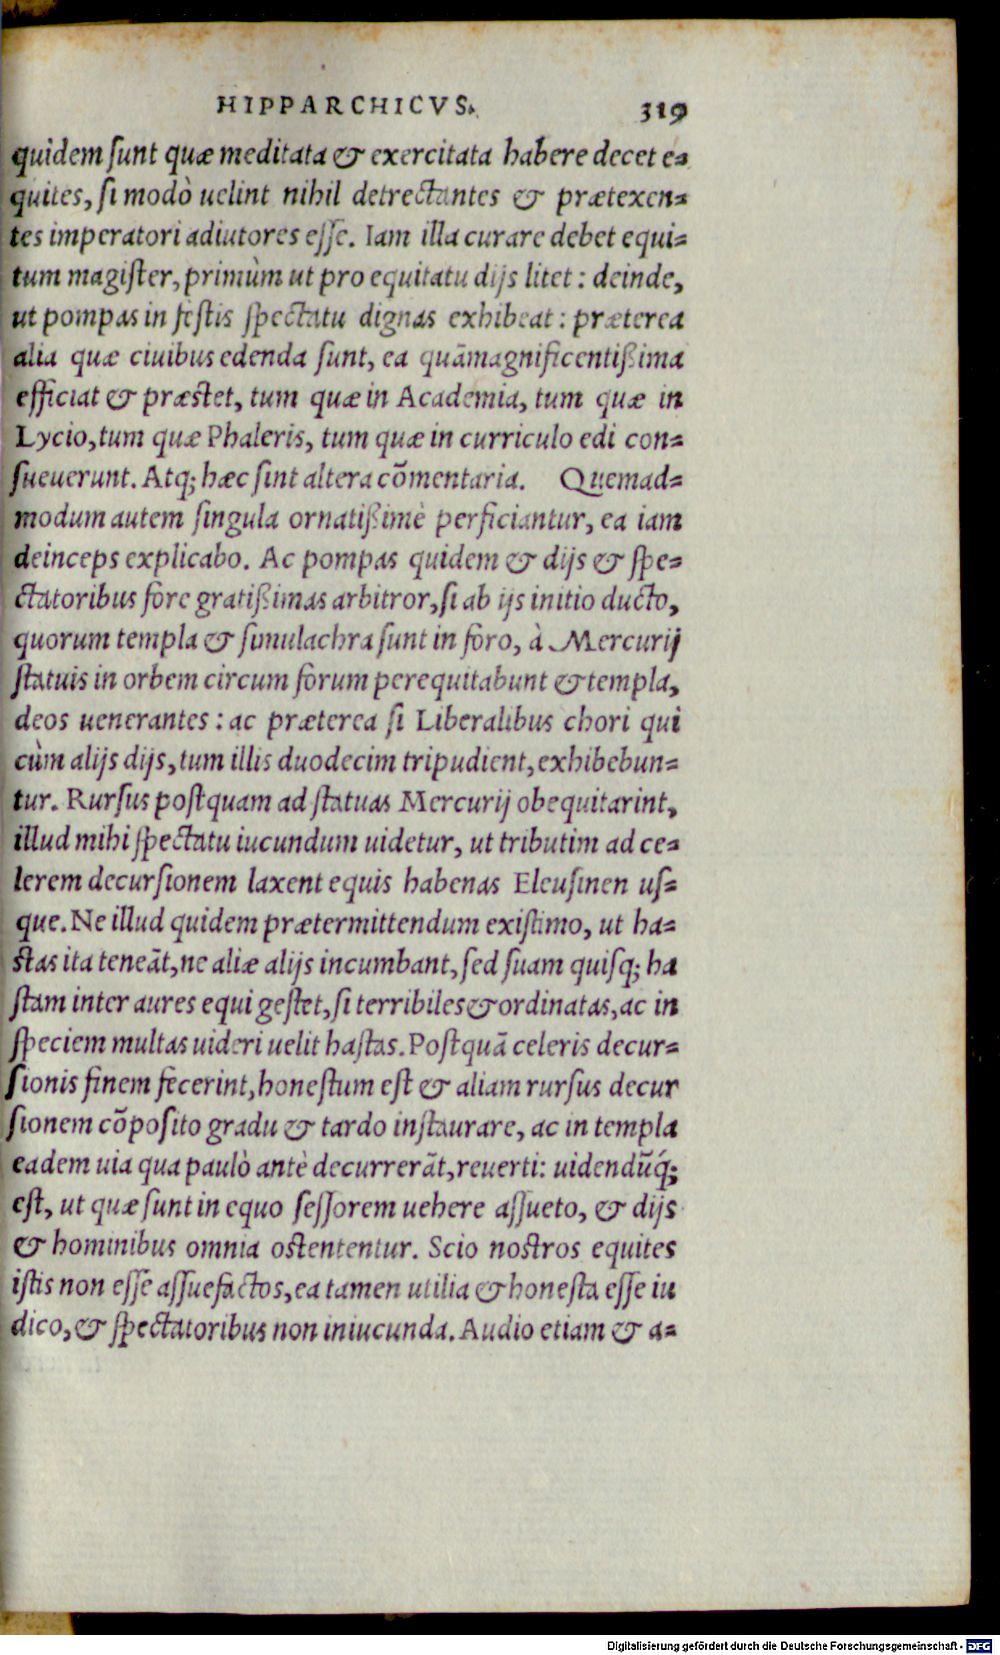 HIPPARCHICVS. 319
quidem sunt quæ meditata & exercitata habere decet e-
quites, si modò uelint nihil detrectantes & prætexen-
tes imperatori adiutores esse. Iam illa curare debet equi-
tum magister, primùm ut pro equitatu dijs litet: deinde,
ut pompas in festis spectatu dignas exhibeat: præterea
alia quæ ciuibus edenda sunt, ea quāmagnificentißima
efficiat & præstet, tum quæ in Academia, tum quæ in
Lycio, tum quæ Phaleris, tum quæ in curriculo edi con-
sueuerunt. Atq; hæc sint altera cōmentaria. Quemad-
modum autem singula ornatißimè perficiantur, ea iam
deinceps explicabo. Ac pompas quidem & dijs & spe-
ctatoribus fore gratißimas arbitror, si ab ijs initio ducto,
quorum templa & simulachra sunt in foro, à Mercurij
statuis in orbem circum forum perequitabunt & templa,
deos uenerantes: ac præterea si Liberalibus chori qui
cùm alijs dijs, tum illis duodecim tripudient, exhibebun-
tur. Rursus postquam ad statuas Mercurij obequitarint,
illud mihi spectatu iucundum uidetur, ut tributim ad ce-
lerem decursionem laxent equis habenas Eleusinen us-
que. Ne illud quidem prætermittendum existimo, ut ha-
stas ita teneāt, ne aliæ alijs incumbant, sed suam quisq; ha
stam inter aures equi gestet, si terribiles & ordinatas, ac in
speciem multas uideri uelit hastas. Postquā celeris decur-
sionis finem fecerint, honestum est & aliam rursus decur
sionem cōposito gradu & tardo instaurare, ac in templa
eadem uia qua paulò antè decurrerāt, reuerti: uidendūq́;
est, ut quæ sunt in equo sessorem uehere assueto, & dijs
& hominibus omnia ostententur. Scio nostros equites
istis non esse assuefactos, ea tamen utilia & honesta esse iu
dico, & spectatoribus non iniucunda. Audio etiam & a-
Digitalisierung gefördert durch die Deutsche Forschungsgemeinschaft - DFG